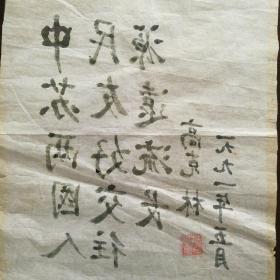 中苏两國人
民友好交往
源遠流长
高克林
一九九一年五月